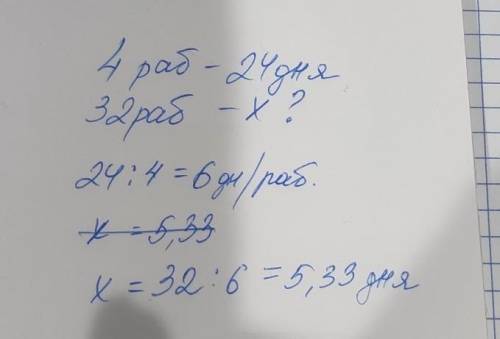 4 раб - 24 дня
32 раб - x ?
24 : 4 = 6 дн/раб.
x = 5,33
x = 32 : 6 = 5,33 дня